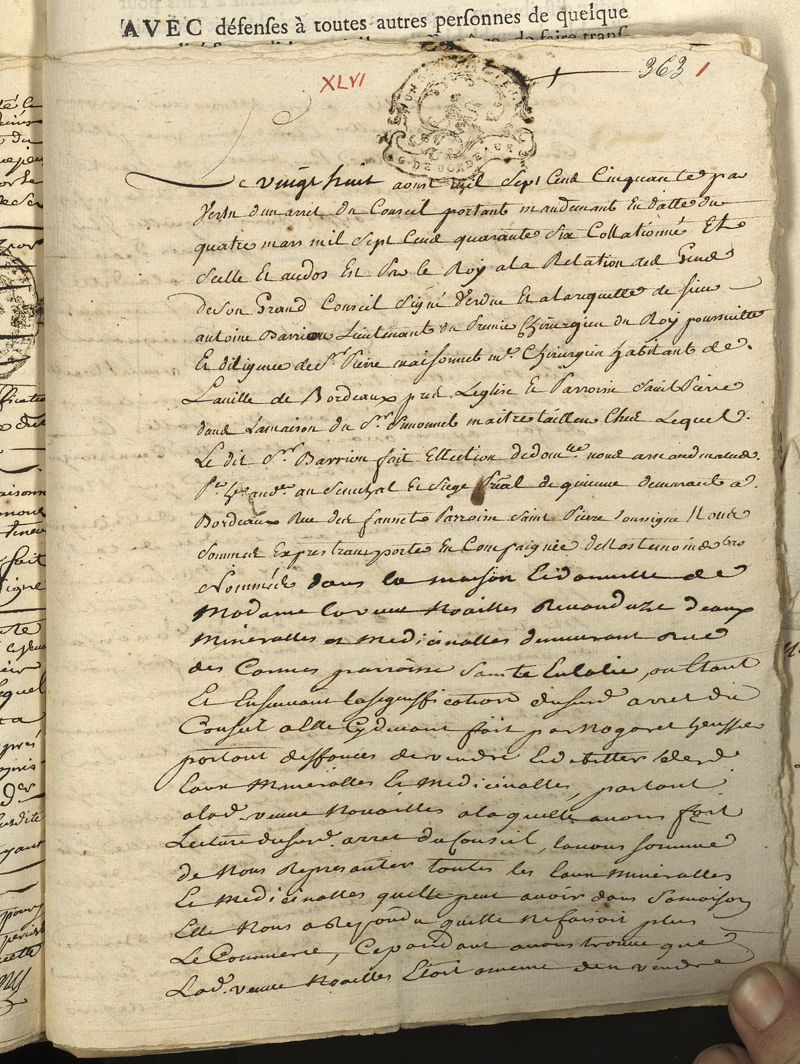 AVEC défenses à toutes autres personnes de quelque
XLVI
363 1
G. DE BORDEAUX
Le vingt huit aoust mil sept Cend Cinquante par
Vertu d'un arret du Conseil portant mandemant En datte du
quatre mars mil sept Cend quarante six Collationné Et
Scellé Et audos Est Par le Roy ala Relation ded Gend
deson Grand Conseil Signé Verduc Et alarequette de sieur
antoine Barriou Lieutenant du Premier Chirurgien du Roy poursuitte
Et diligence de Sr. Pierre maisonnet me. Chirurgien habitant de
Laville de Bordeaux pred Leglise Et Parroisse Saint Pierre
dand Lamaison du Sr. Simonnet maitre tailleur Ched Lequel
Le dit Sr. Barriou fait Ellection dedomlle. noud
au Senechal Et Siege de guienne demeurant a
Bordeaux Rue ded Parroisse Saint Pierre soussigne Noud
Sommed Expres transporté En Compaignie
Nommés dans la maison Eidomicille de
Madame la veuve Noailles Revanduze deaux
Minéralles et Medicinalles demeurant Rue
des Carmes parroisse Sainte Eulalie, ou Etant
Et Ensuivant lasignification dususd. arret du
Conseil a Elle Cydevant fait par Nogaret heussier
portant deffances devendre
Eaux Minéralles Et Medicinalles, partant
alad. veuve Nouailles alaquelle avons fait
Lecture dususd. arret du Conseil, lavons sommé
de Nous Representer toutes les Eaux Minéralles
Et Medicinalles quelle peut avoir dans Samaison
Elle Nous a Repondu quelle Ne faisoit plus
Le Commerce, Cepandant avons trouvé que
Lad. veuve Noailles Etoit a meme den vendre